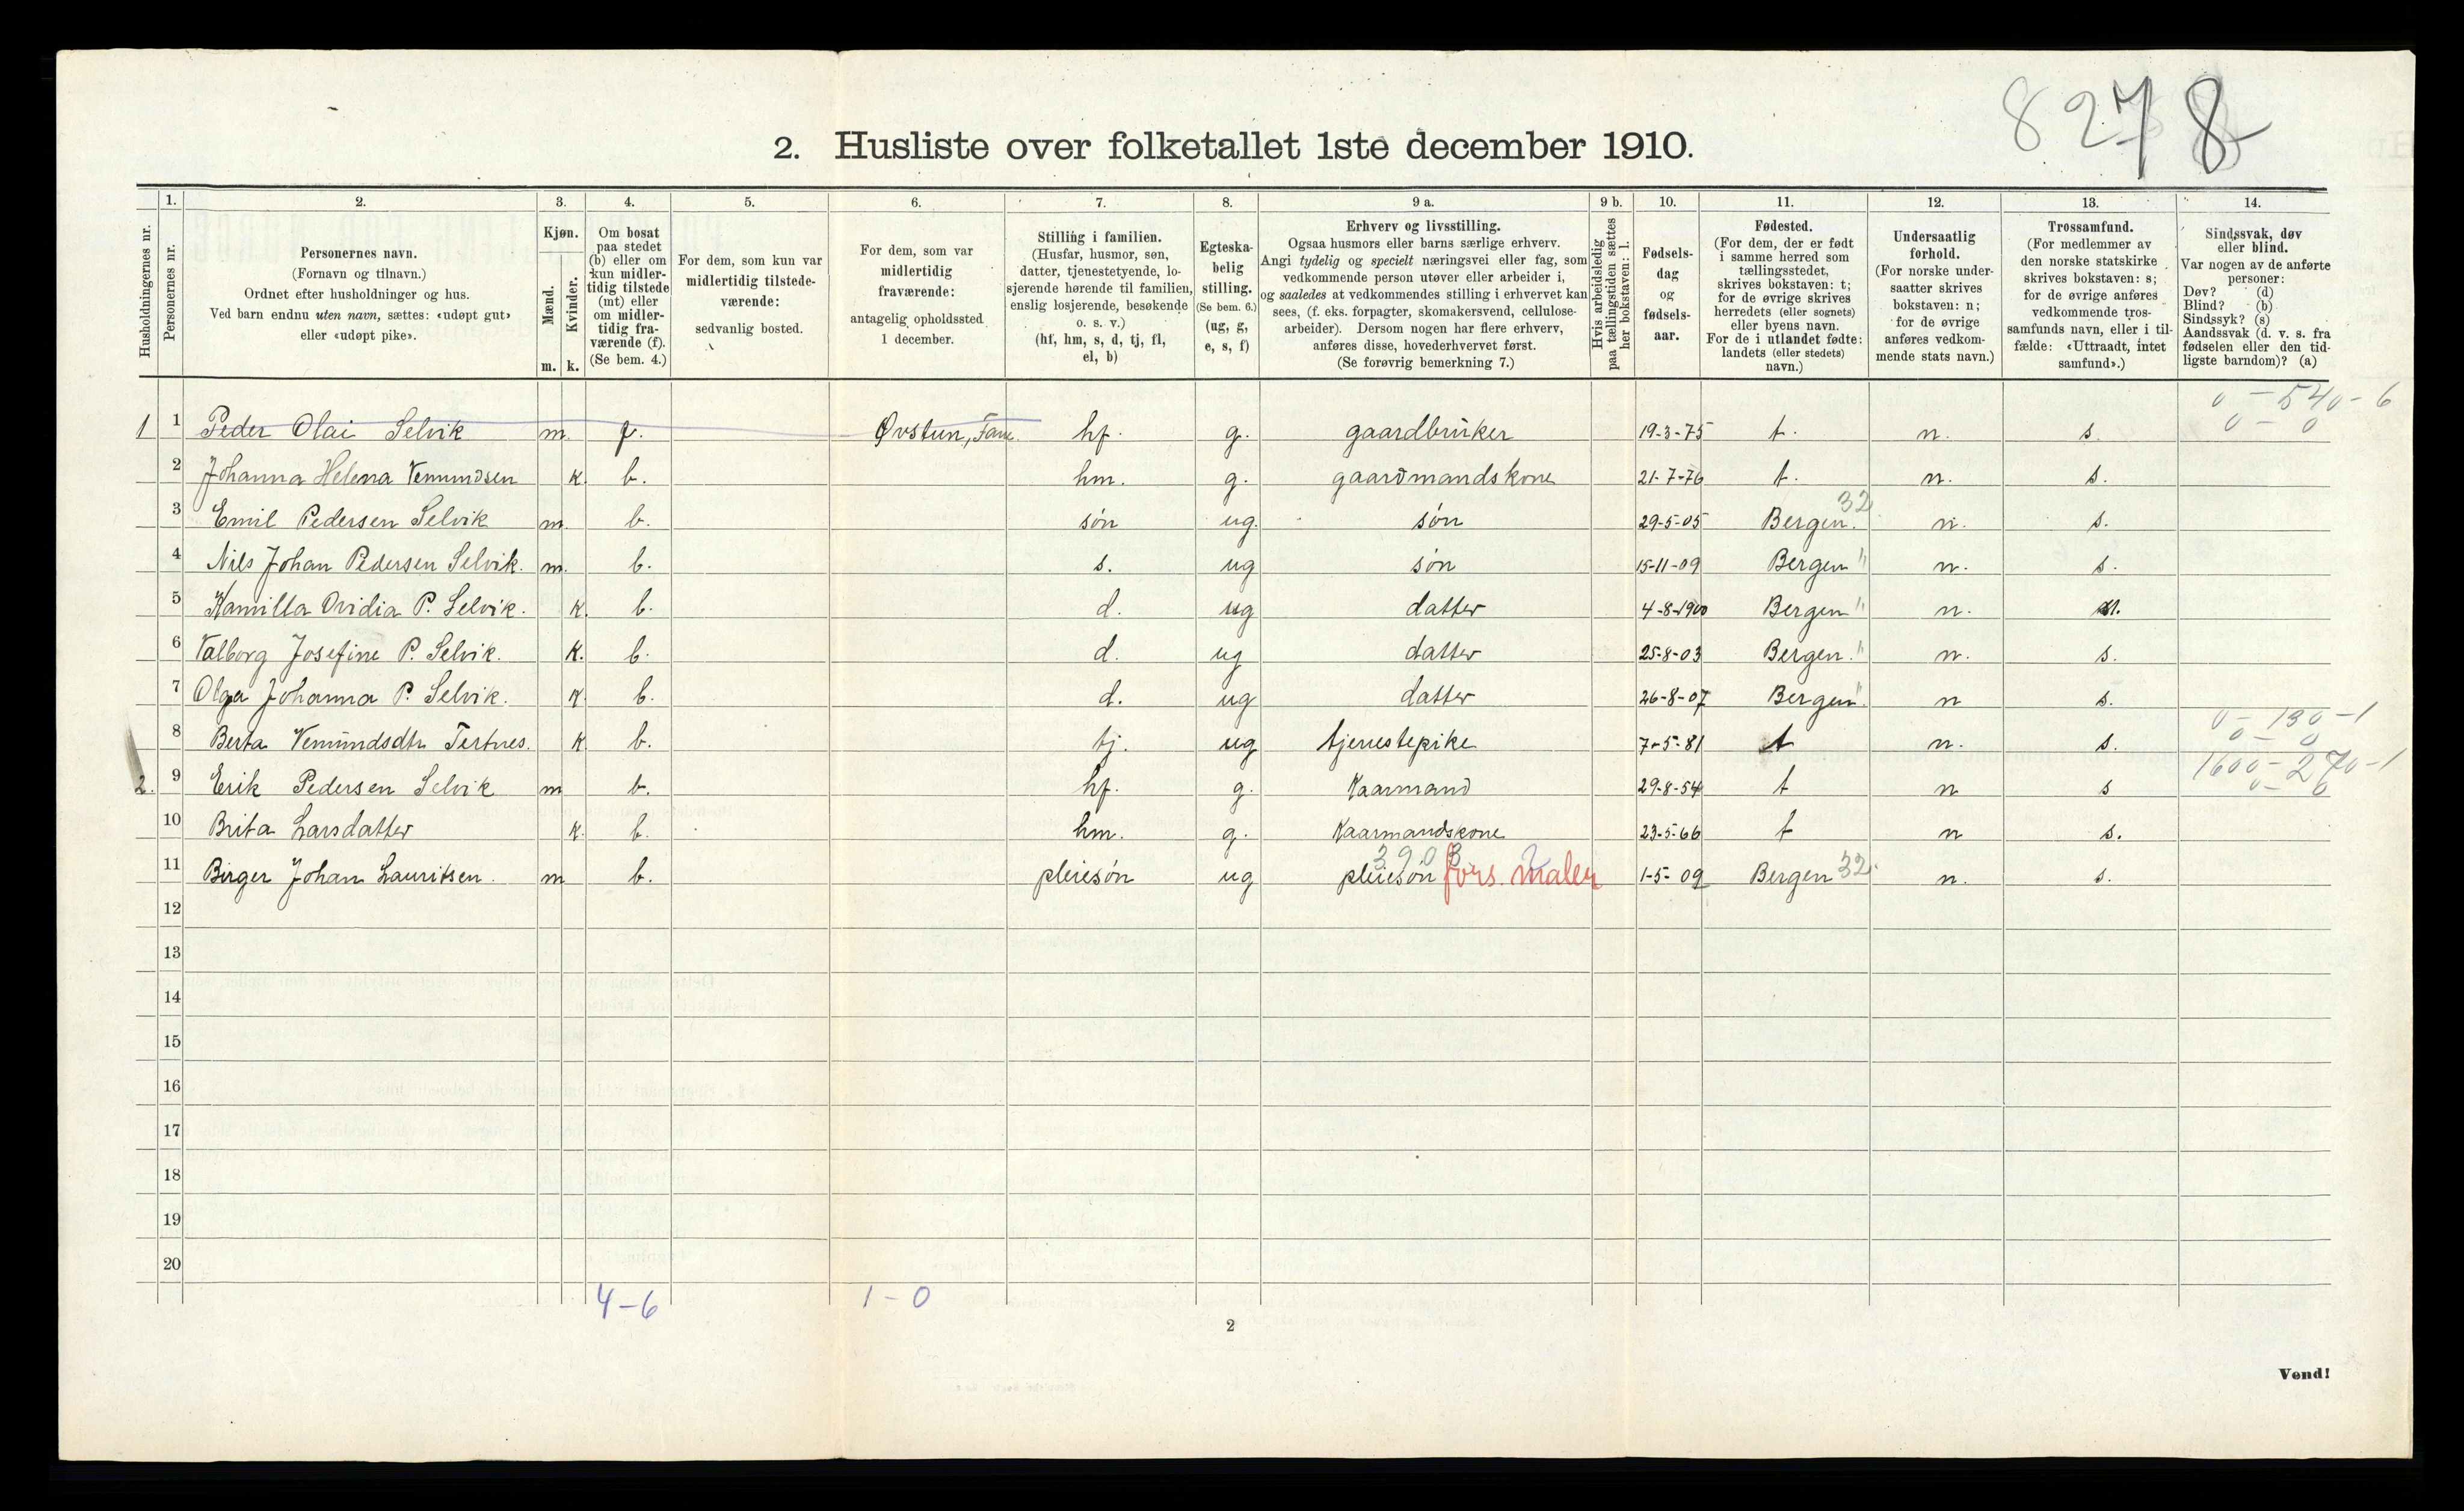 8278
2. Husliste over folketallet 1ste december 1910.
Husholdningernes nr.
1. Personernes nr.
2. Personernes navn. (Fornavn og tilnavn.) Ordnet efter husholdninger og hus. Ved barn endnu uten navn, sættes: «udøpt gut» eller «udøpt pike».
3. Kjøn. Mænd. m. Kvinder. k.
4. Om bosat paa stedet (b) eller om kun midlertidig tilstede (mt) eller om midlertidig fraværende (f). (Se bem. 4.)
5. For dem, som kun var midlertidig tilstedeværende: sedvanlig bosted.
6. For dem, som var midlertidig fraværende: antagelig opholdssted 1 december.
7. Stilling i familien. (Husfar, husmor, søn, datter, tjenestetyende, losjerende hørende til familien, enslig losjerende, besøkende o. s. v.) (hf, hm, s, d, tj, fl, el, b)
8. Egteskabelig stilling. (Se bem. 6.) (ug, g, e, s, f)
9 a. Erhverv og livsstilling. Ogsaa husmors eller barns særlige erhverv. Angi tydelig og specielt næringsvei eller fag, som vedkommende person utøver eller arbeider i, og saaledes at vedkommendes stilling i erhvervet kan sees, (f. eks. forpagter, skomakersvend, cellulosearbeider). Dersom nogen har flere erhverv, anføres disse, hovederhvervet først. (Se forøvrig bemerkning 7.)
9 b. Hvis arbeidsledig paa tællingstiden sættes her bokstaven: l.
10. Fødselsdag og fødselsaar.
11. Fødested. (For dem, der er født i samme herred som tællingsstedet, skrives bokstaven: t; for de øvrige skrives herredets (eller sognets) eller byens navn. For de i utlandet fødte: landets (eller stedets) navn.)
12. Undersaatlig forhold. (For norske undersaatter skrives bokstaven: n; for de øvrige anføres vedkommende stats navn.)
13. Trossamfund. (For medlemmer av den norske statskirke skrives bokstaven: s; for de øvrige anføres vedkommende trossamfunds navn, eller i tilfælde: «Uttraadt, intet samfund».)
14. Sindssvak, døv eller blind. Var nogen av de anførte personer: Døv? (d) Blind? (b) Sindssyk? (s) Aandssvak (d. v. s. fra fødselen eller den tidligste barndom)? (a)
1 1 Peder Olai Selvik m. f. Øvstun, Fane hf. g. gaardbruker 19-3-75 t. n. s. 0 - 540 - 6 0 - 0
2 Johanna Helena Vemundsen k. b. hm. g. gaardmandskone 21-7-76 t. n. s.
3 Emil Pedersen Selvik m. b. søn ug. søn 29-5-05 Bergen. 32 n. s.
4 Nils Johan Pedersen Selvik. m. b. s. ug søn 15-11-09 Bergen " n. s.
5 Kamilla Ovidia P. Selvik. k. b. d. ug datter 4-8-1900 Bergen " n.
6 Valborg Josefine P. Selvik. k. b. d. ug datter 25-8-03 Bergen. " n. s.
7 Olga Johanna P. Selvik. k. b. d. ug datter 26-8-07 Bergen " n s.
8 Berta Vemundsdtr Tertnes. k b. tj. ug tjenestepike 7-5-81 t n. s. 0 - 130 - 1 0 - 0
2. 9 Erik Pedersen Selvik m b. hf. g. Kaarmand 29-8-54 t n s 1600 - 270 - 1 0 - 0
10 Brita Larsdatter k. b. hm. g. Kaarmandskone 23-5-66 t n s.
11 Birger Johan Lauritsen. m b. pleiesøn ug pleiesøn 3903 fors. maler 1-5-09 Bergen 32. n. s.
12
13
14
15
16
17
18
19
20
4-6 1-0
2
Vend!